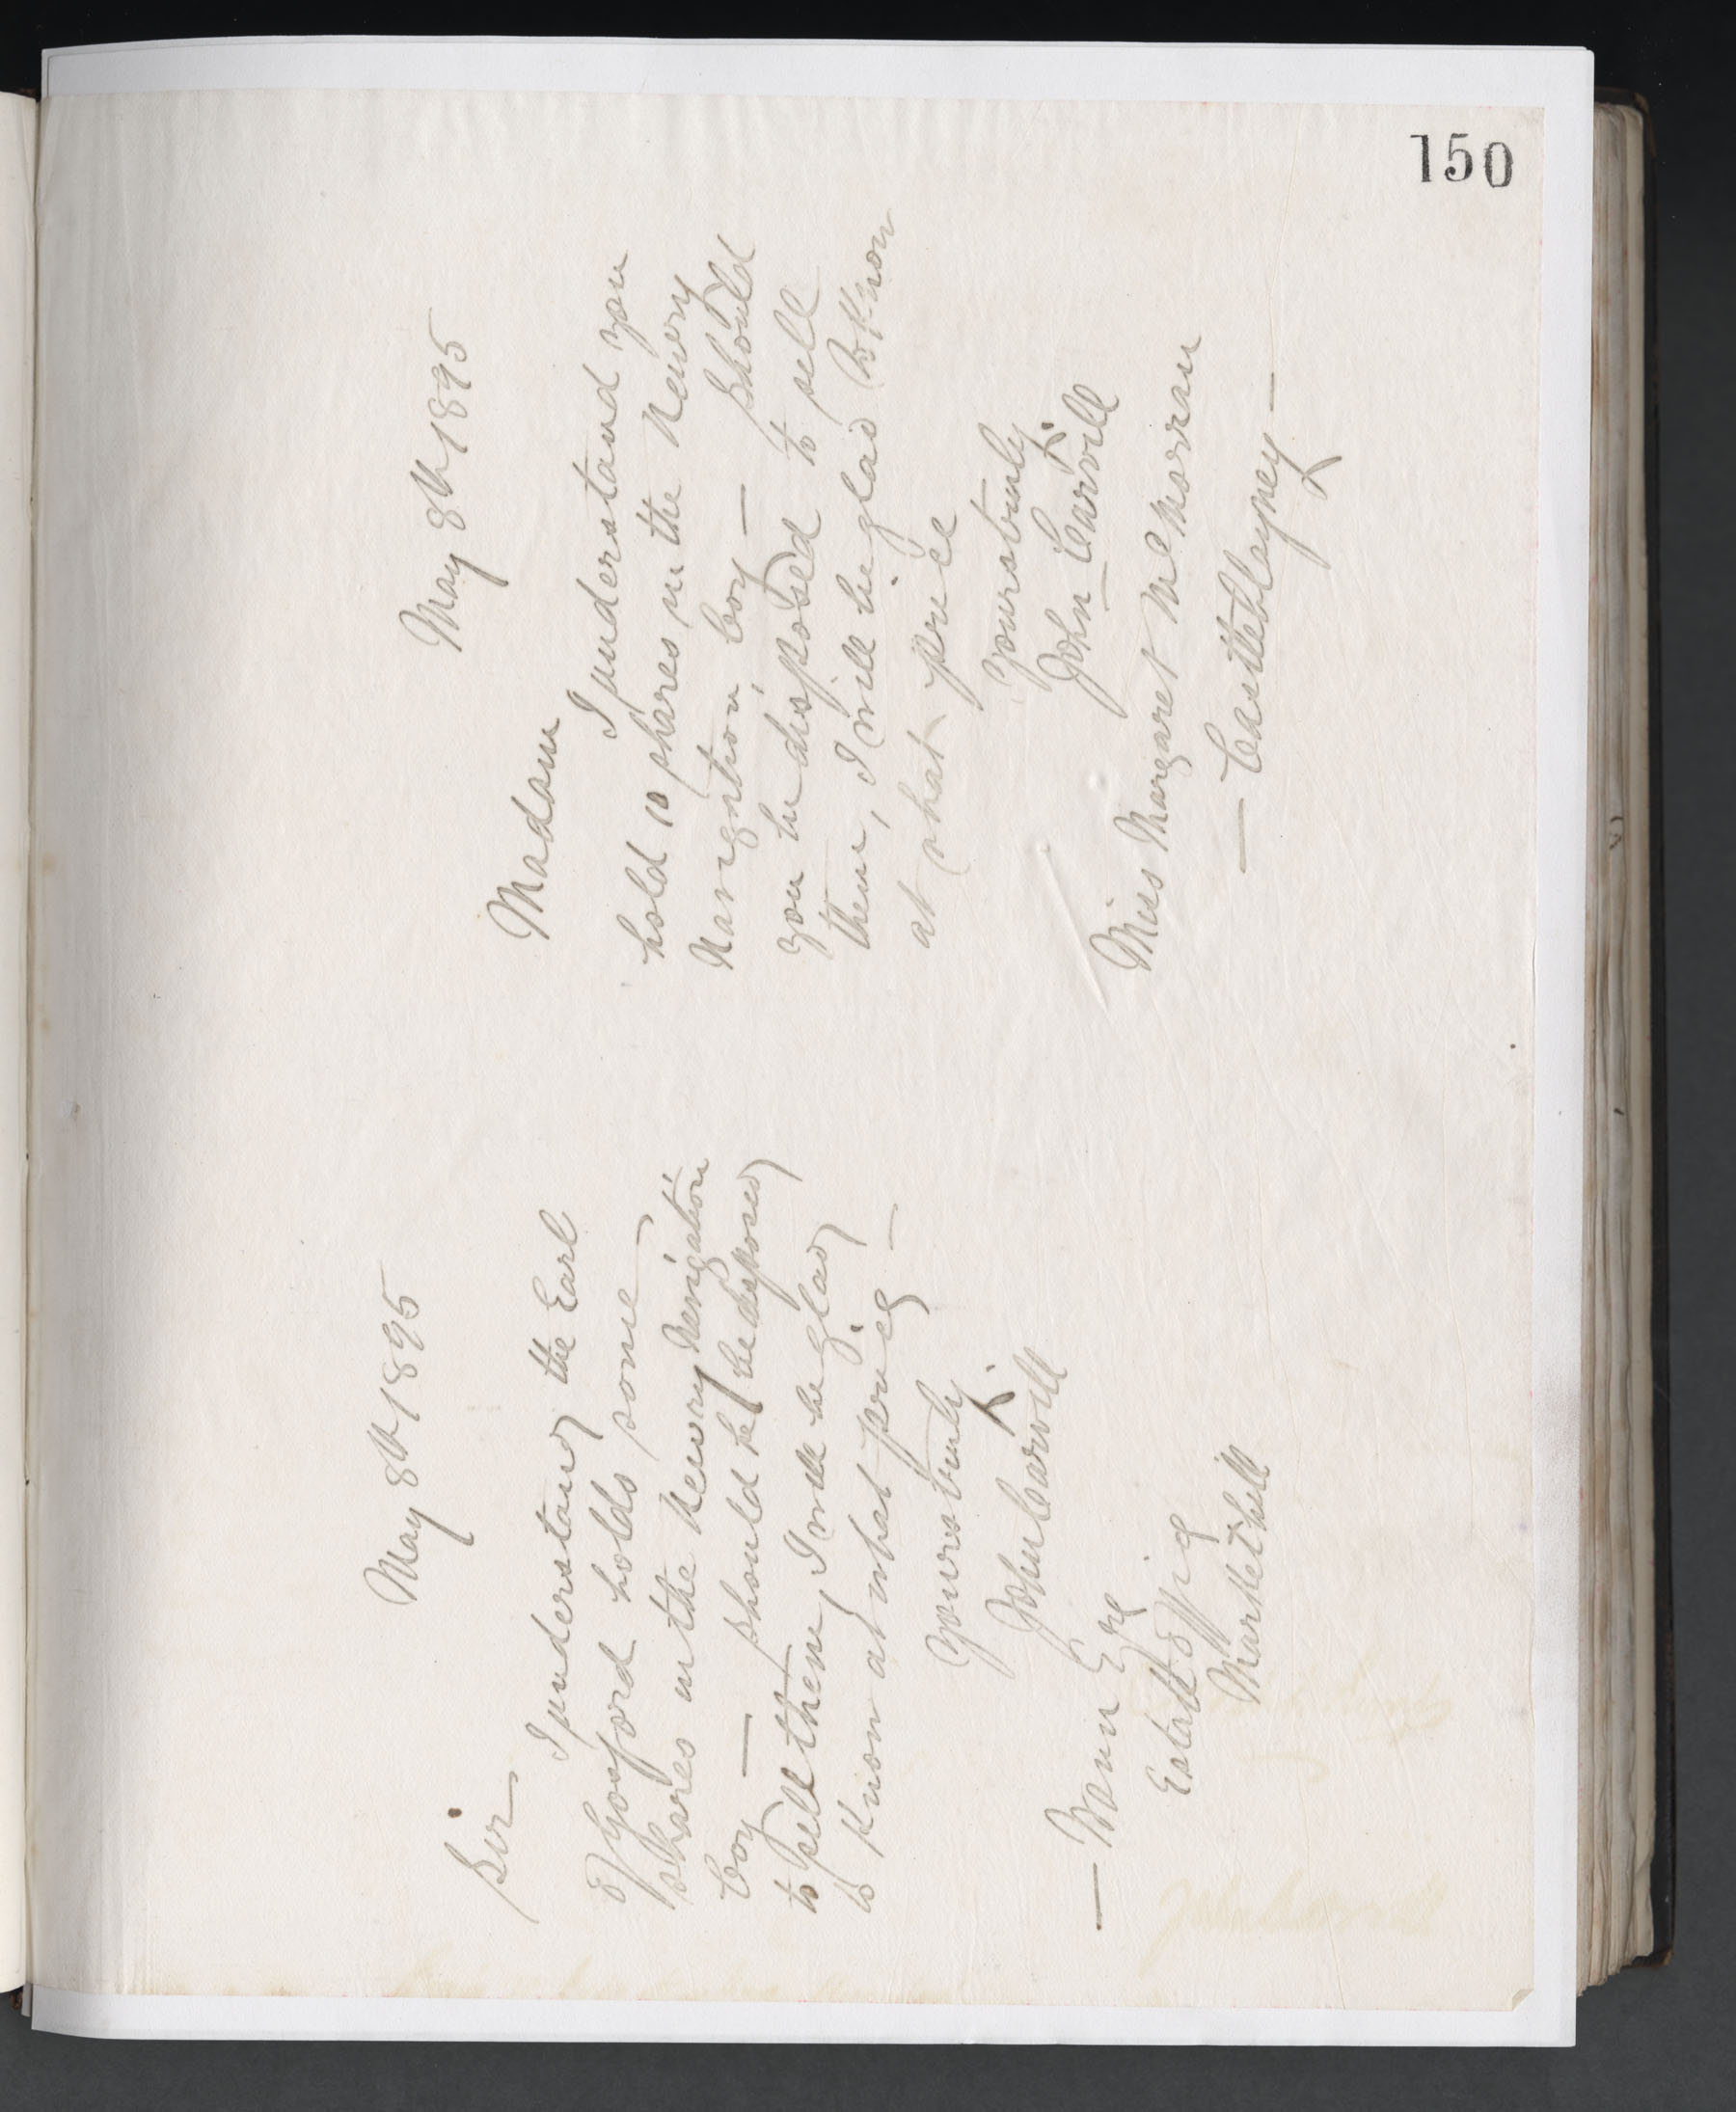 150
May 8th 1895
Sir
I understand the Earl
of Gosford holds some
shares in the Newry Navigation
Coy — should he be disposed
to sell them, I will be glad
to know at what price —
Yours truly
John Carvill
— Wann Esq
Estate Office
Markethill
May 8th 1895
Madam
I understand you
hold 10 shares in the Newry
Navigation Coy — should
you be disposed to sell
them, I will be glad to know
at what price
Yours truly
John Carvill
Miss Margaret McMorran
— Castleblayney —